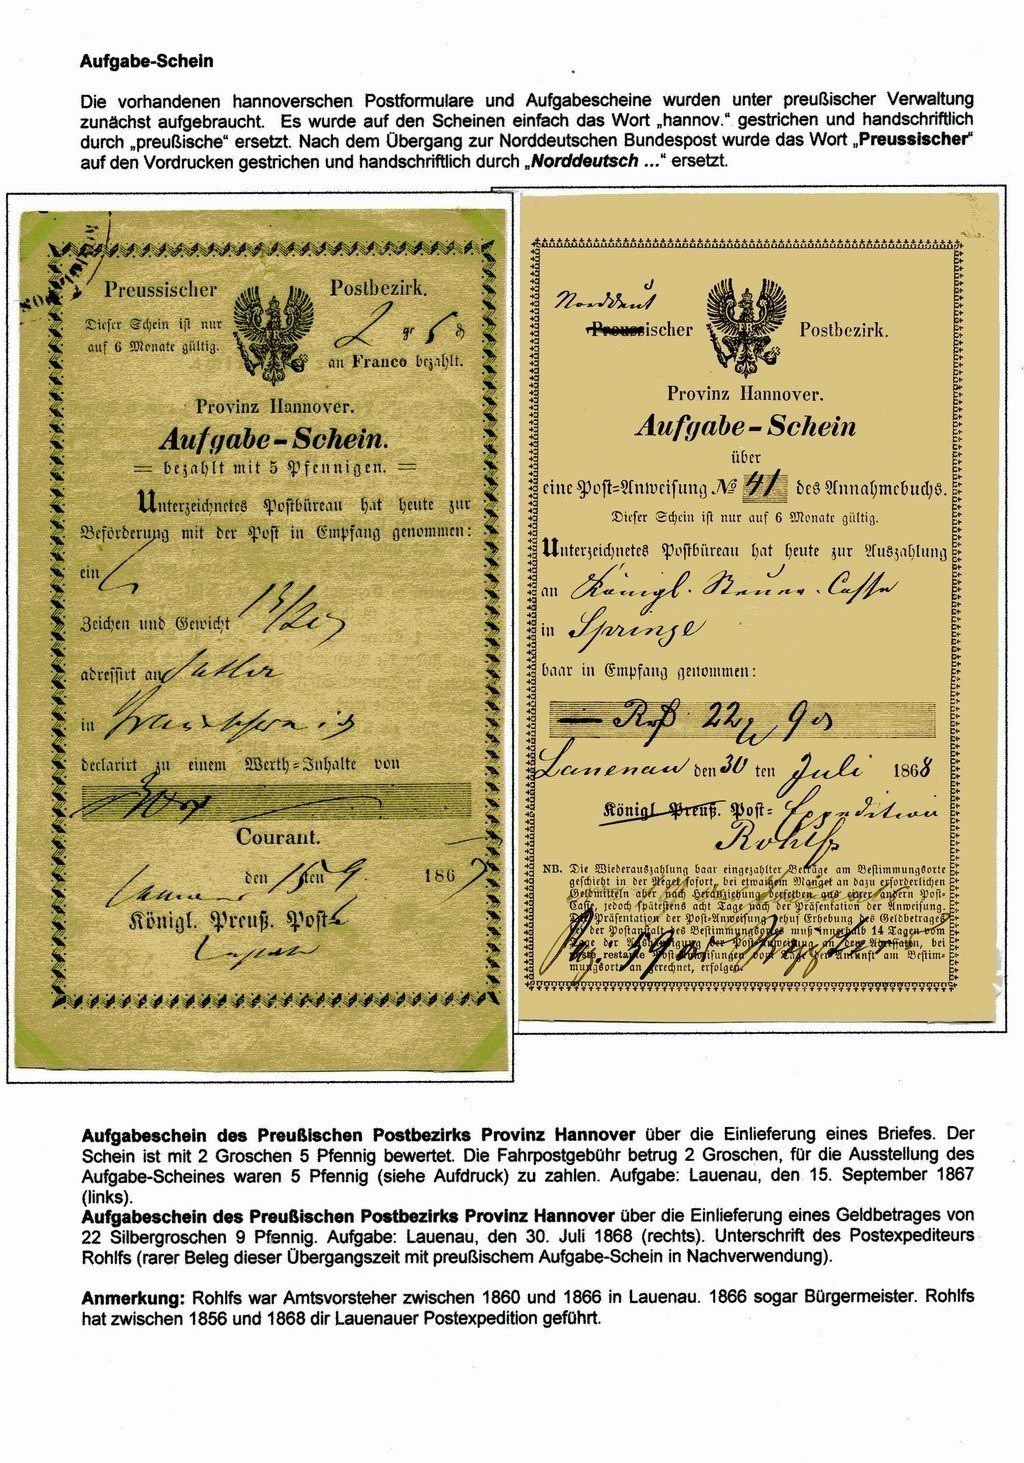 Aufgabe-Schein
Die vorhandenen hannoverschen Postformulare und Aufgabescheine wurden unter preußischer Verwaltung
zunächst aufgebraucht. Es wurde auf den Scheinen einfach das Wort „hannov.“ gestrichen und handschriftlich
durch „preußische“ ersetzt. Nach dem Übergang zur Norddeutschen Bundespost wurde das Wort „Preussischer“
auf den Vordrucken gestrichen und handschriftlich durch „Norddeutsch ...“ ersetzt.
Preussischer Postbezirk.
Dieser Schein ist nur
auf 6 Monate gültig.
2 gr 5 d
an Franco bezahlt.
Provinz Hannover.
Aufgabe-Schein.
bezahlt mit 5 Pfennigen.
Unterzeichnetes Postbüreau hat heute zur
Beförderung mit der Post in Empfang genommen:
ein
Zeichen und Gewicht
adressirt an
in
declarirt zu einem Werth-Inhalte von
Courant.
den 15 ten 9. 1867
Königl. Preuß. Post-
Norddeut
Preussischer Postbezirk.
Provinz Hannover.
Aufgabe-Schein
über
eine Post-Anweisung No 41 des Annahmebuchs.
Dieser Schein ist nur auf 6 Monate gültig.
Unterzeichnetes Postbüreau hat heute zur Auszahlung
an Königl. Steuer-Casse
in Springe
baar in Empfang genommen:
22 9
Lauenau den 30 ten Juli 1868
Königl Preuß. Post-Expedition
Rohlfs
NB. Die Wiederauszahlung baar eingezahlter Beträge am Bestimmungsorte
geschieht in der Regel sofort, bei etwaigem Mangel an dazu erforderlichen
Geldmitteln aber nach Heranziehung derselben aus einer andern Post-
Casse, jedoch spätestens acht Tage nach der Präsentation der Anweisung.
Die Präsentation der Post-Anweisung behuf Erhebung des Geldbetrages
bei der Postanstalt des Bestimmungsortes muß innerhalb 14 Tagen vom
Tage der Aushändigung der Postanweisung an den Adressaten, bei
poste restante Postanweisungen vom Tage der Ankunft am Bestim-
mungsorte an gerechnet, erfolgen.
Aufgabeschein des Preußischen Postbezirks Provinz Hannover über die Einlieferung eines Briefes. Der
Schein ist mit 2 Groschen 5 Pfennig bewertet. Die Fahrpostgebühr betrug 2 Groschen, für die Ausstellung des
Aufgabe-Scheines waren 5 Pfennig (siehe Aufdruck) zu zahlen. Aufgabe: Lauenau, den 15. September 1867
(links).
Aufgabeschein des Preußischen Postbezirks Provinz Hannover über die Einlieferung eines Geldbetrages von
22 Silbergroschen 9 Pfennig. Aufgabe: Lauenau, den 30. Juli 1868 (rechts). Unterschrift des Postexpediteurs
Rohlfs (rarer Beleg dieser Übergangszeit mit preußischem Aufgabe-Schein in Nachverwendung).
Anmerkung: Rohlfs war Amtsvorsteher zwischen 1860 und 1866 in Lauenau. 1866 sogar Bürgermeister. Rohlfs
hat zwischen 1856 und 1868 dir Lauenauer Postexpedition geführt.